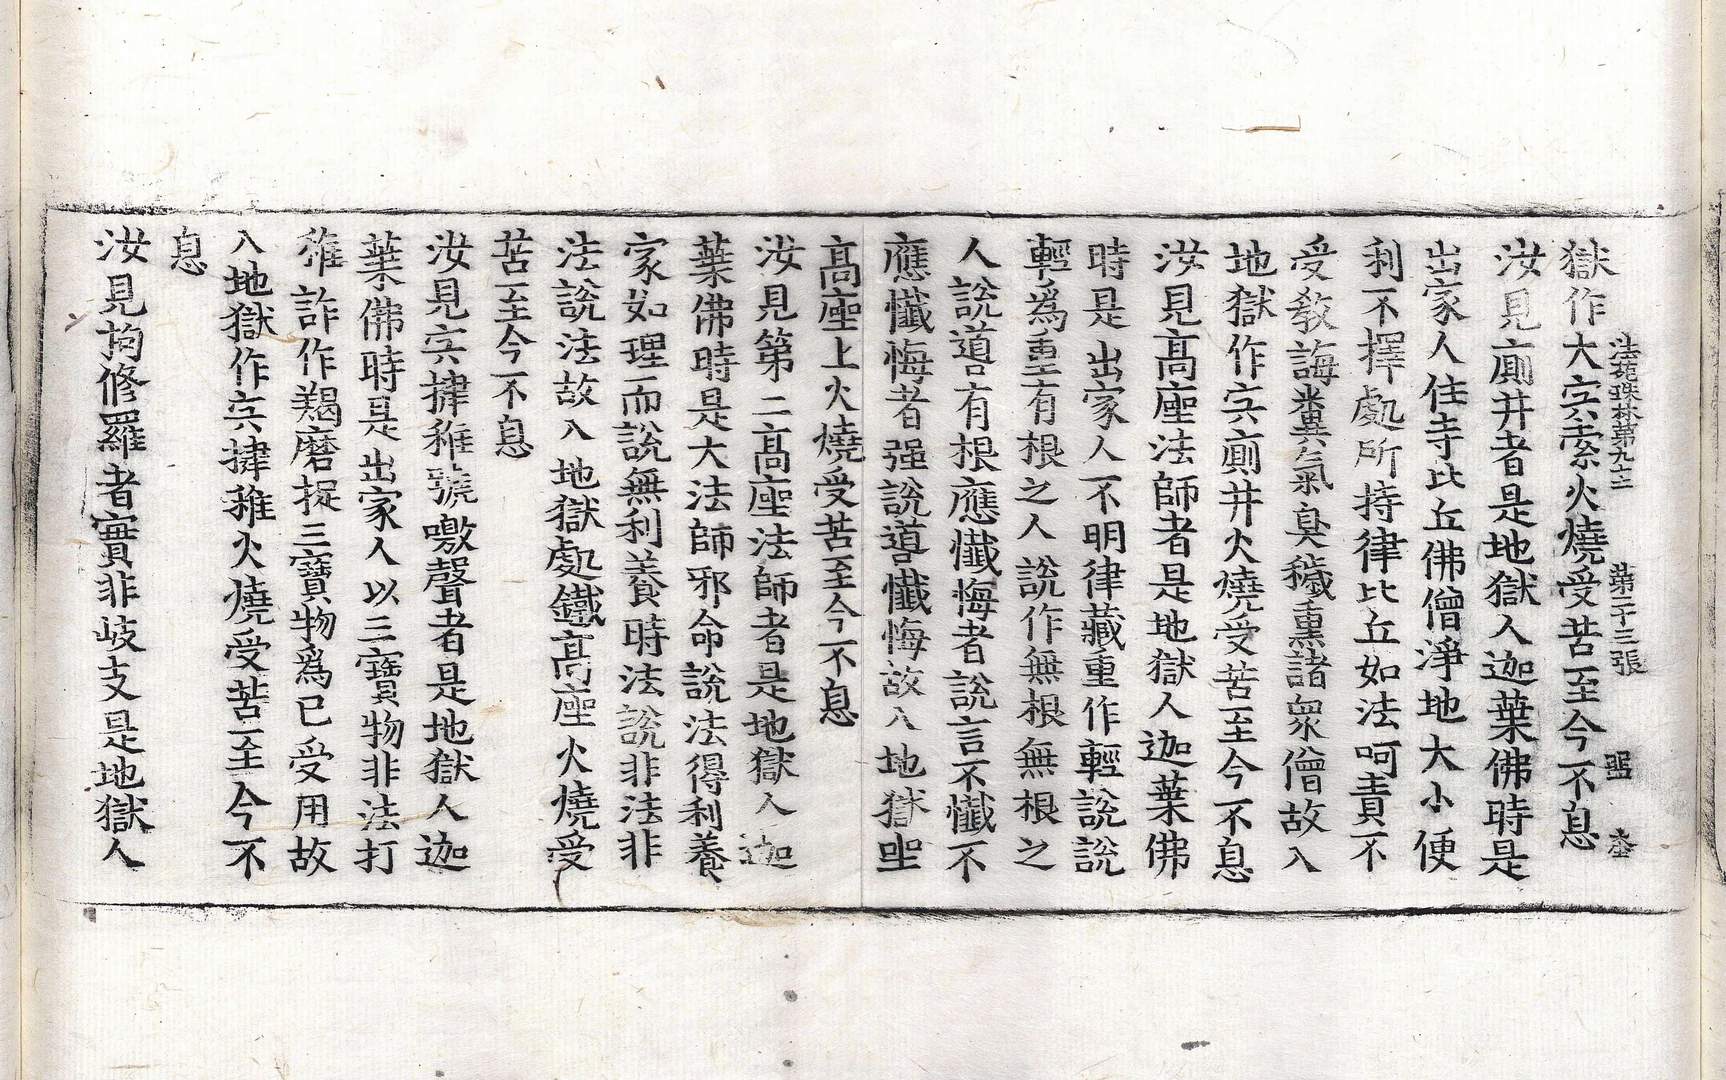 法苑珠林第九十二　第二十三張　罪　叁
獄作大宍索火燒受苦至今不息
汝見廁井者是地獄人迦葉佛時是
出家人住寺比丘佛僧淨地大小便
利不擇處所持律比丘如法呵責不
受教誨糞氣臭穢熏諸衆僧故入
地獄作宍廁井火燒受苦至今不息
汝見高座法師者是地獄人迦葉佛
時是出家人不明律藏重作輕說說
輕爲重有根之人說作無根無根之
人說道有根應懺悔者說言不懺不
應懺悔者强說道懺悔故入地獄坐
高座上火燒受苦至今不息
汝見第二高座法師者是地獄人迦
葉佛時是大法師邪命說法得利養
家如理而說無利養時法說非法非
法說法故入地獄處鐵高座火燒受
苦至今不息
汝見宍揵稚號噭聲者是地獄人迦
葉佛時是出家人以三寶物非法打
稚詐作羯磨捉三寶物爲已受用故
入地獄作宍揵稚火燒受苦至今不
息
汝見拘修羅者實非岐支是地獄人